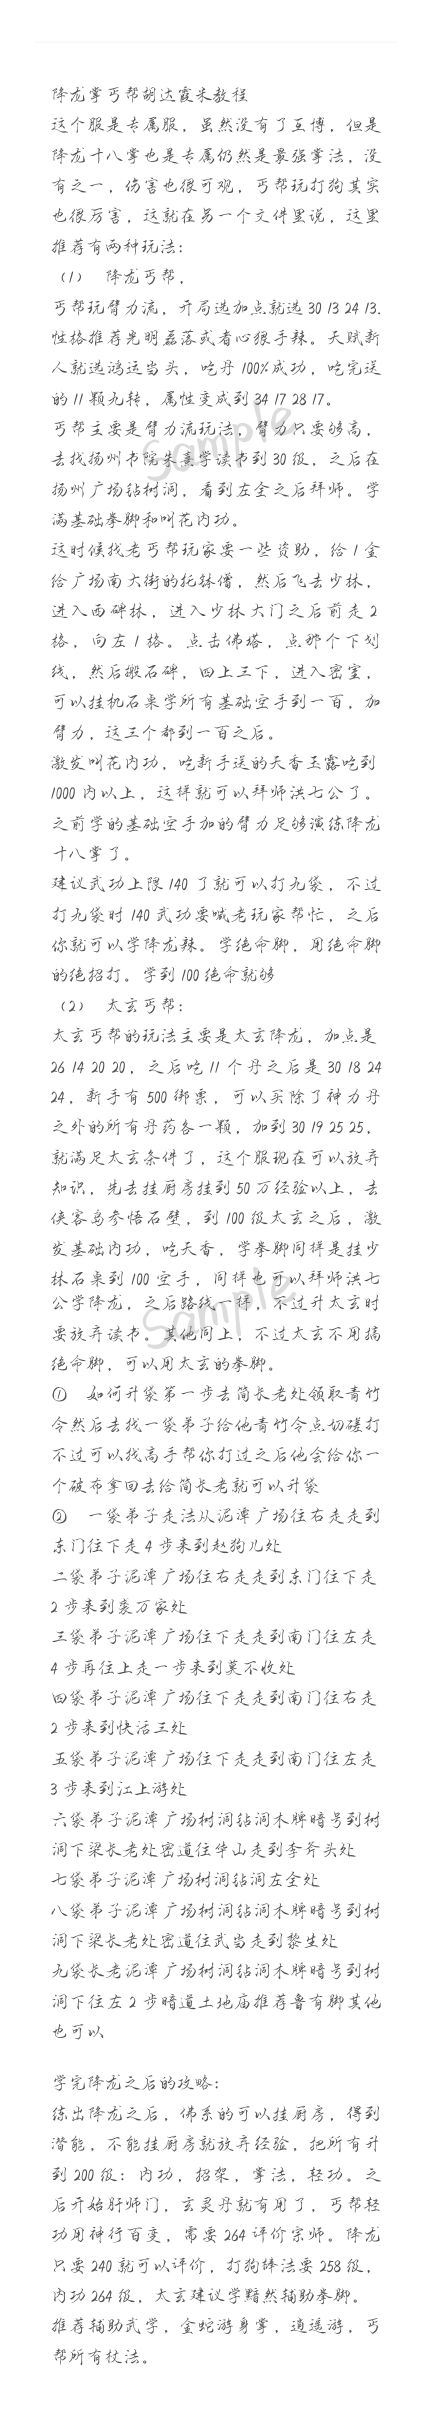 降龙掌丐帮胡达霞米教程
这个服是专属服，虽然没有了互博，但是
降龙十八掌也是专属仍然是最强掌法，没
有之一，伤害也很可观，丐帮玩打狗其实
也很厉害，这就在另一个文件里说，这里
推荐有两种玩法：
（1） 降龙丐帮，
丐帮玩臂力流，开局选加点就选 30 13 24 13.
性格推荐光明磊落或者心狠手辣。天赋新
人就选鸿运当头，吃丹 100%成功，吃完送
的 11 颗九转，属性变成到 34 17 28 17。
丐帮主要是臂力流玩法，臂力只要够高，
去找扬州书院朱熹学读书到 30 级，之后在
扬州广场钻树洞，看到左全之后拜师。学
满基础拳脚和叫花内功。
这时候找老丐帮玩家要一些资助，给 1 金
给广场南大街的托钵僧，然后飞去少林，
进入西碑林，进入少林大门之后前走 2
格，向左 1 格。点击佛塔，点那个下划
线，然后搬石碑，四上三下，进入密室，
可以挂机石桌学所有基础空手到一百，加
臂力，这三个都到一百之后。
激发叫花内功，吃新手送的天香玉露吃到
1000 内以上，这样就可以拜师洪七公了。
之前学的基础空手加的臂力足够演练降龙
十八掌了。
建议武功上限 140 了就可以打九袋，不过
打九袋时 140 武功要喊老玩家帮忙，之后
你就可以学降龙辣。学绝命脚，用绝命脚
的绝招打。学到 100 绝命就够
（2） 太玄丐帮：
太玄丐帮的玩法主要是太玄降龙，加点是
26 14 20 20，之后吃 11 个丹之后是 30 18 24
24，新手有 500 绑票，可以买除了神力丹
之外的所有丹药各一颗，加到 30 19 25 25，
就满足太玄条件了，这个服现在可以放弃
知识，先去挂厨房挂到 50 万经验以上，去
侠客岛参悟石壁，到 100 级太玄之后，激
发基础内功，吃天香，学拳脚同样是挂少
林石桌到 100 空手，同样也可以拜师洪七
公学降龙，之后路线一样，不过升太玄时
要放弃读书。其他同上，不过太玄不用搞
绝命脚，可以用太玄的拳脚。
① 如何升袋第一步去简长老处领取青竹
令然后去找一袋弟子给他青竹令点切磋打
不过可以找高手帮你打过之后他会给你一
个破布拿回去给简长老就可以升袋
② 一袋弟子走法从泥潭广场往右走走到
东门往下走 4 步来到赵狗儿处
二袋弟子泥潭广场往右走走到东门往下走
2 步来到裘万家处
三袋弟子泥潭广场往下走走到南门往左走
4 步再往上走一步来到莫不收处
四袋弟子泥潭广场往下走走到南门往右走
2 步来到快活三处
五袋弟子泥潭广场往下走走到南门往左走
3 步来到江上游处
六袋弟子泥潭广场树洞钻洞木牌暗号到树
洞下梁长老处密道往华山走到李斧头处
七袋弟子泥潭广场树洞钻洞左全处
八袋弟子泥潭广场树洞钻洞木牌暗号到树
洞下梁长老处密道往武当走到黎生处
九袋长老泥潭广场树洞钻洞木牌暗号到树
洞下往左 2 步暗道土地庙推荐鲁有脚其他
也可以
学完降龙之后的攻略：
练出降龙之后，佛系的可以挂厨房，得到
潜能，不能挂厨房就放弃经验，把所有升
到 200 级：内功，招架，掌法，轻功。之
后开始肝师门，玄灵丹就有用了，丐帮轻
功用神行百变，需要 264 评价宗师。降龙
只要 240 就可以评价，打狗棒法要 258 级，
内功 264 级，太玄建议学黯然辅助拳脚。
推荐辅助武学，金蛇游身掌，逍遥游，丐
帮所有杖法。
Sample
Sample